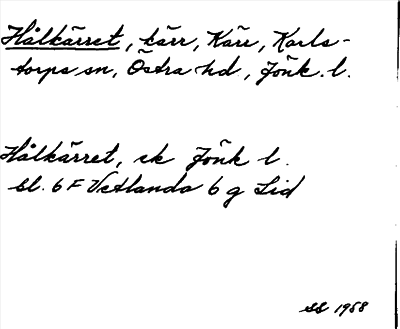 Hålkärret, kärr, Kärr, Karls-
torps sn, Östra hd, Jönk. l.
Hålkärret, ek Jönk l.
bl. 6 F Vetlanda 6 g Lid
SS 1968